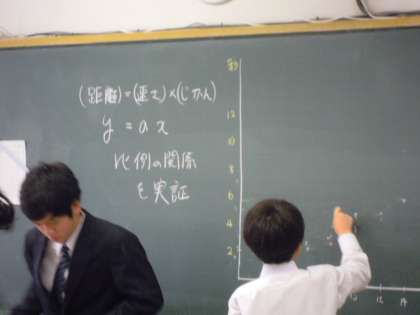 (距離)=(速さ)×(じかん)
y = a x
比例の関係
を実証
12
10
8
6
4
2
12
14